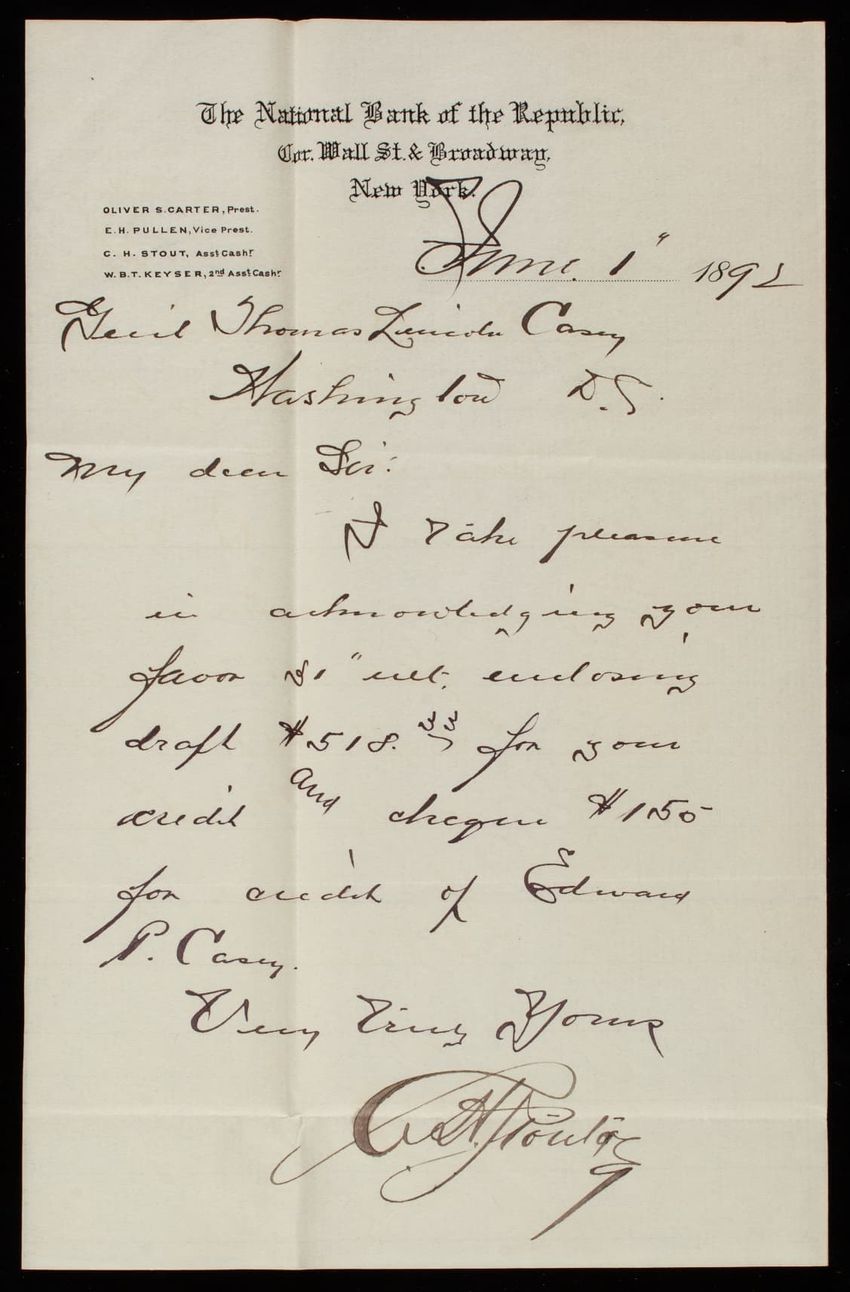 The National Bank of the Republic,
Cor. Wall St. & Broadway,
New York.
OLIVER S. CARTER, Prest.
E. H. PULLEN, Vice Prest.
C. H. STOUT, Asst Cashr
W. B. T. KEYSER, 2nd Asst Cashr
June 1" 1892
Genl Thomas Lincoln Casey
Washington D.C.
My dear Sir:
I take pleasure
in acknowledging your
favor 31" ult, enclosing
draft $518.33 for your
credit and cheque $150
for credit of Edward
P. Casey.
Very Truly Yours
C. H. Stout